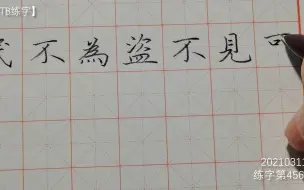 TB练字】
民不為盜不見可
20210311
练字第456